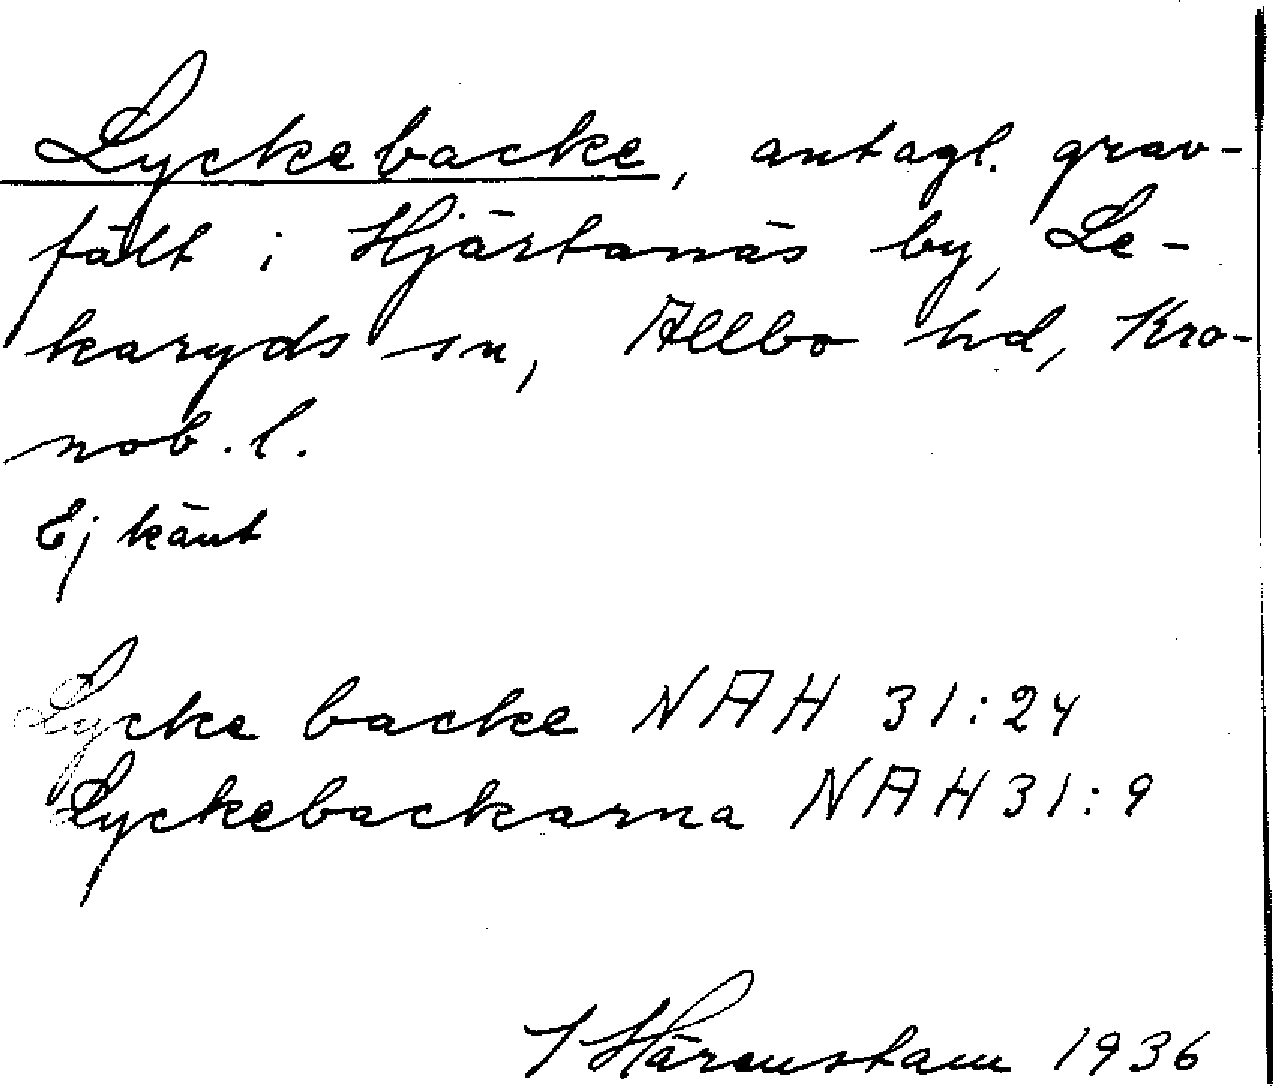 Lyckebacke, antagl. grav-
fält i Hjärtanäs by, Le-
karyds sn, Allbo hd, Kro-
nob. l.
Ej känt
Lycke backe NAH 31:24
Lyckebackarna NAH 31:9
J Härenstam 1936